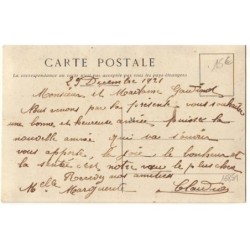 CARTE POSTALE
La correspondance au recto n'est pas acceptée par tous les pays étrangers
29 Décembre 1921
Monsieur et Madame
Nous venons par la présente vous souhaiter
une bonne et heureuse année. puisse la
nouvelle année qui va s'ouvrir
vous apporter la joie le bonheur et
la santé c'est notre vœu le plus cher
nos amitiés
Melle Marguerite Claudia